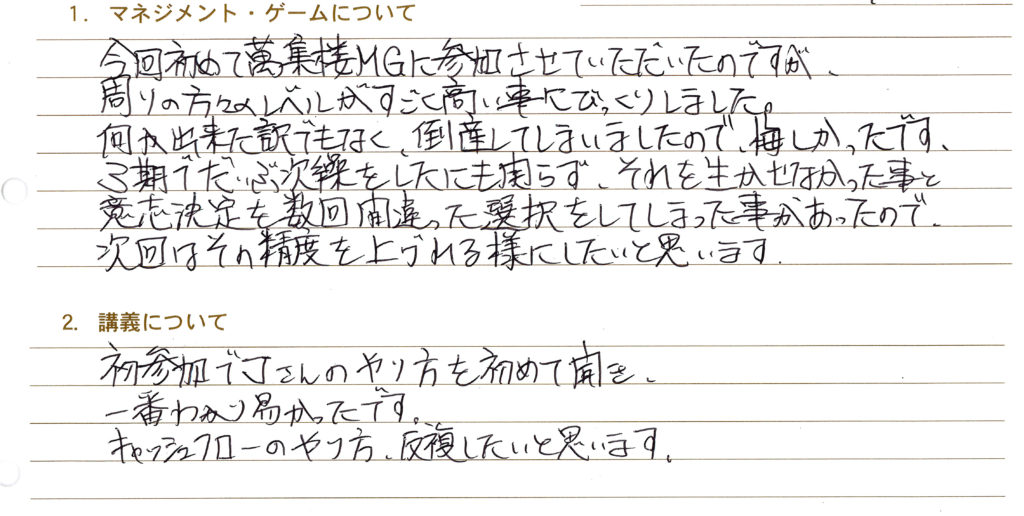 1. マネジメント・ゲームについて
今回初めて萬集楼MGに参加させていただいたのですが、
周りの方々のレベルがすごく高い事にびっくりしました。
何か出来た訳でもなく、倒産してしまいましたので、悔しかったです、
3期でだいぶ次繰をしたにも関らず、それを生かせなかった事と
意志決定を数回間違った選択をしてしまった事があったので、
次回はその精度を上げれる様にしたいと思います.
2. 講義について
初参加でJさんのやり方を初めて聞き、
一番わかり易かったです。
キャッシュフローのやり方、反復したいと思います。